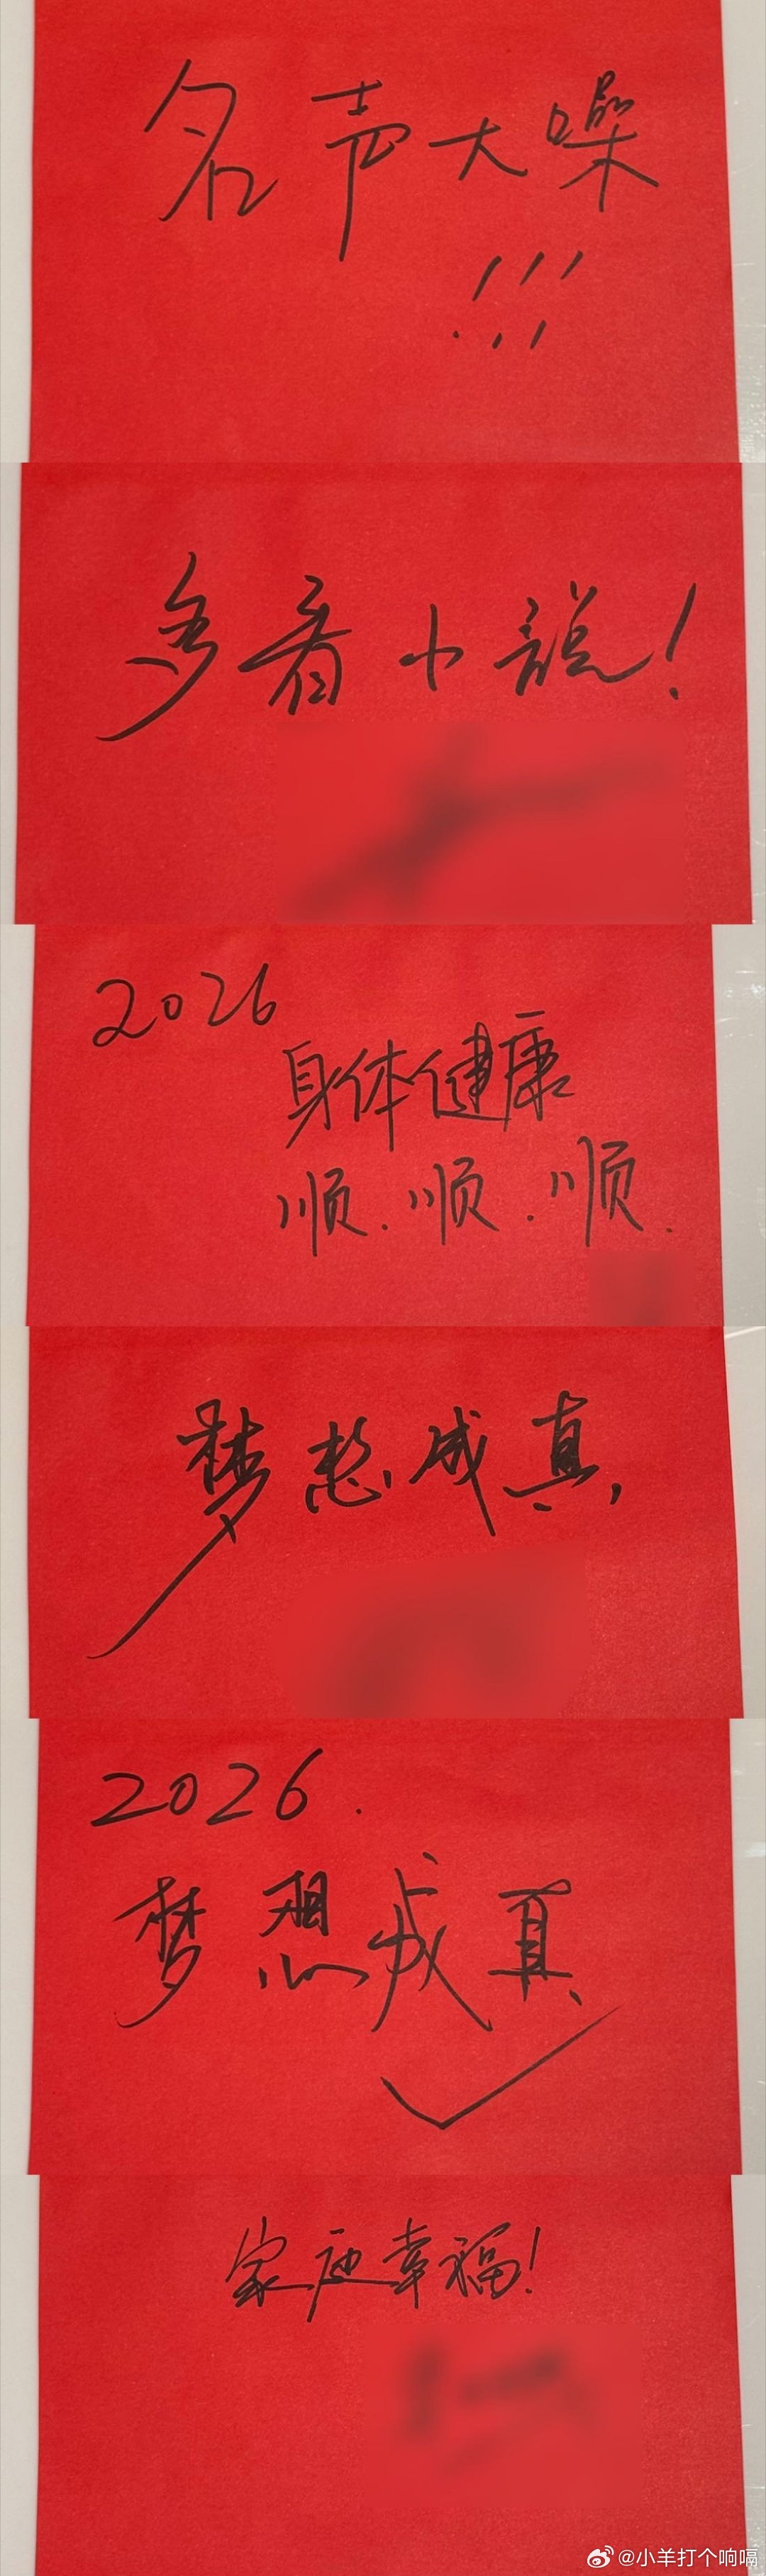 名声大噪
!!!
多看小说!
2026
身体健康
顺.顺.顺.
梦想成真,
2026.
梦想成真
家庭幸福!
@小羊打个响嗝